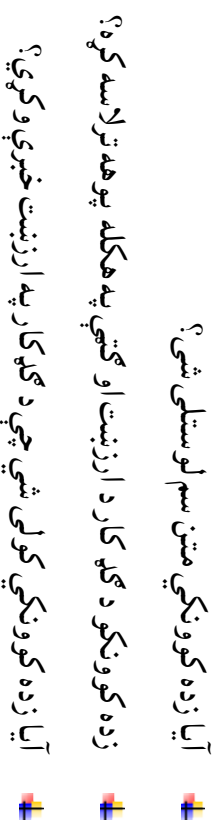 آیا زده کوونکي متن سم لوستلی شي؟
زده کوونکو د ګډ کار د ارزښت او ګټې په هکله پوهه ترلاسه کړه؟
آیا زده کوونکي کولی شي چې د ګډ کار په ارزښت خبرې وکړي؟